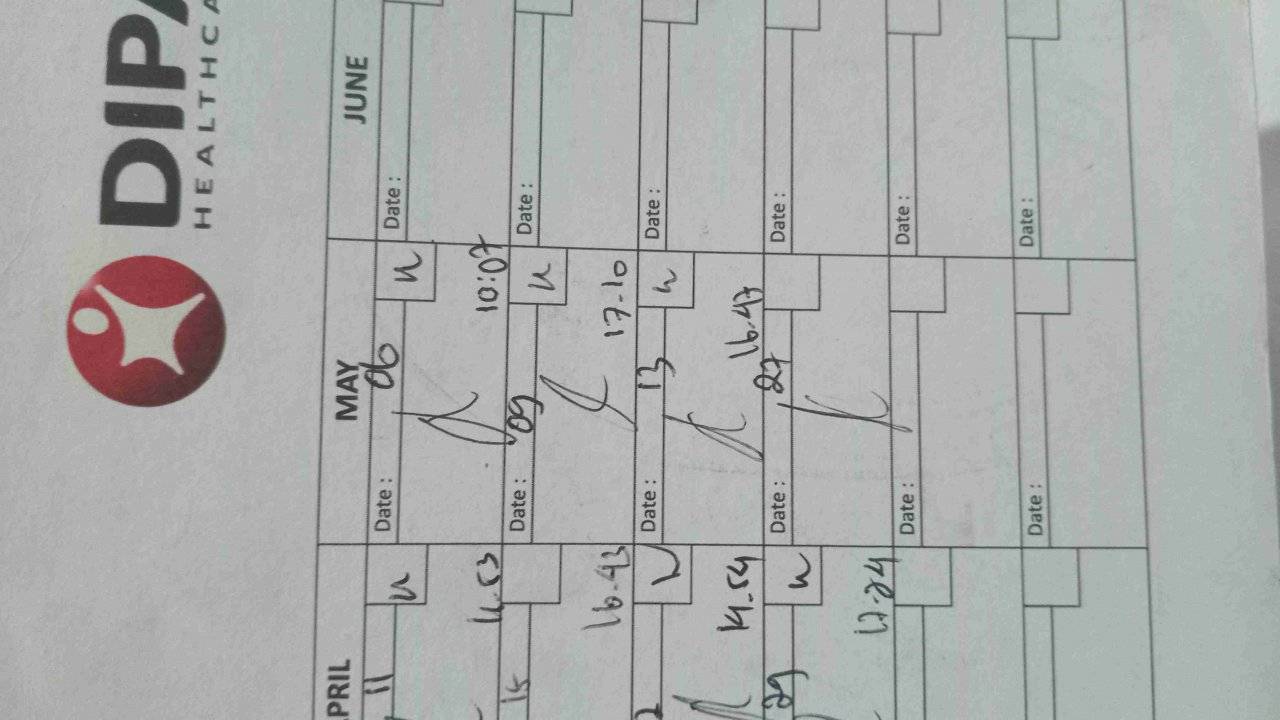 DIPA
HEALTHCA
PRIL
11
u
11.53
15
16.43
u
14.54
29
u
17.24
MAY
Date : 06
u
10:07
Date : 09
u
17.10
Date : 13
u
16.47
Date : 27
Date :
Date :
JUNE
Date :
Date :
Date :
Date :
Date :
Date :